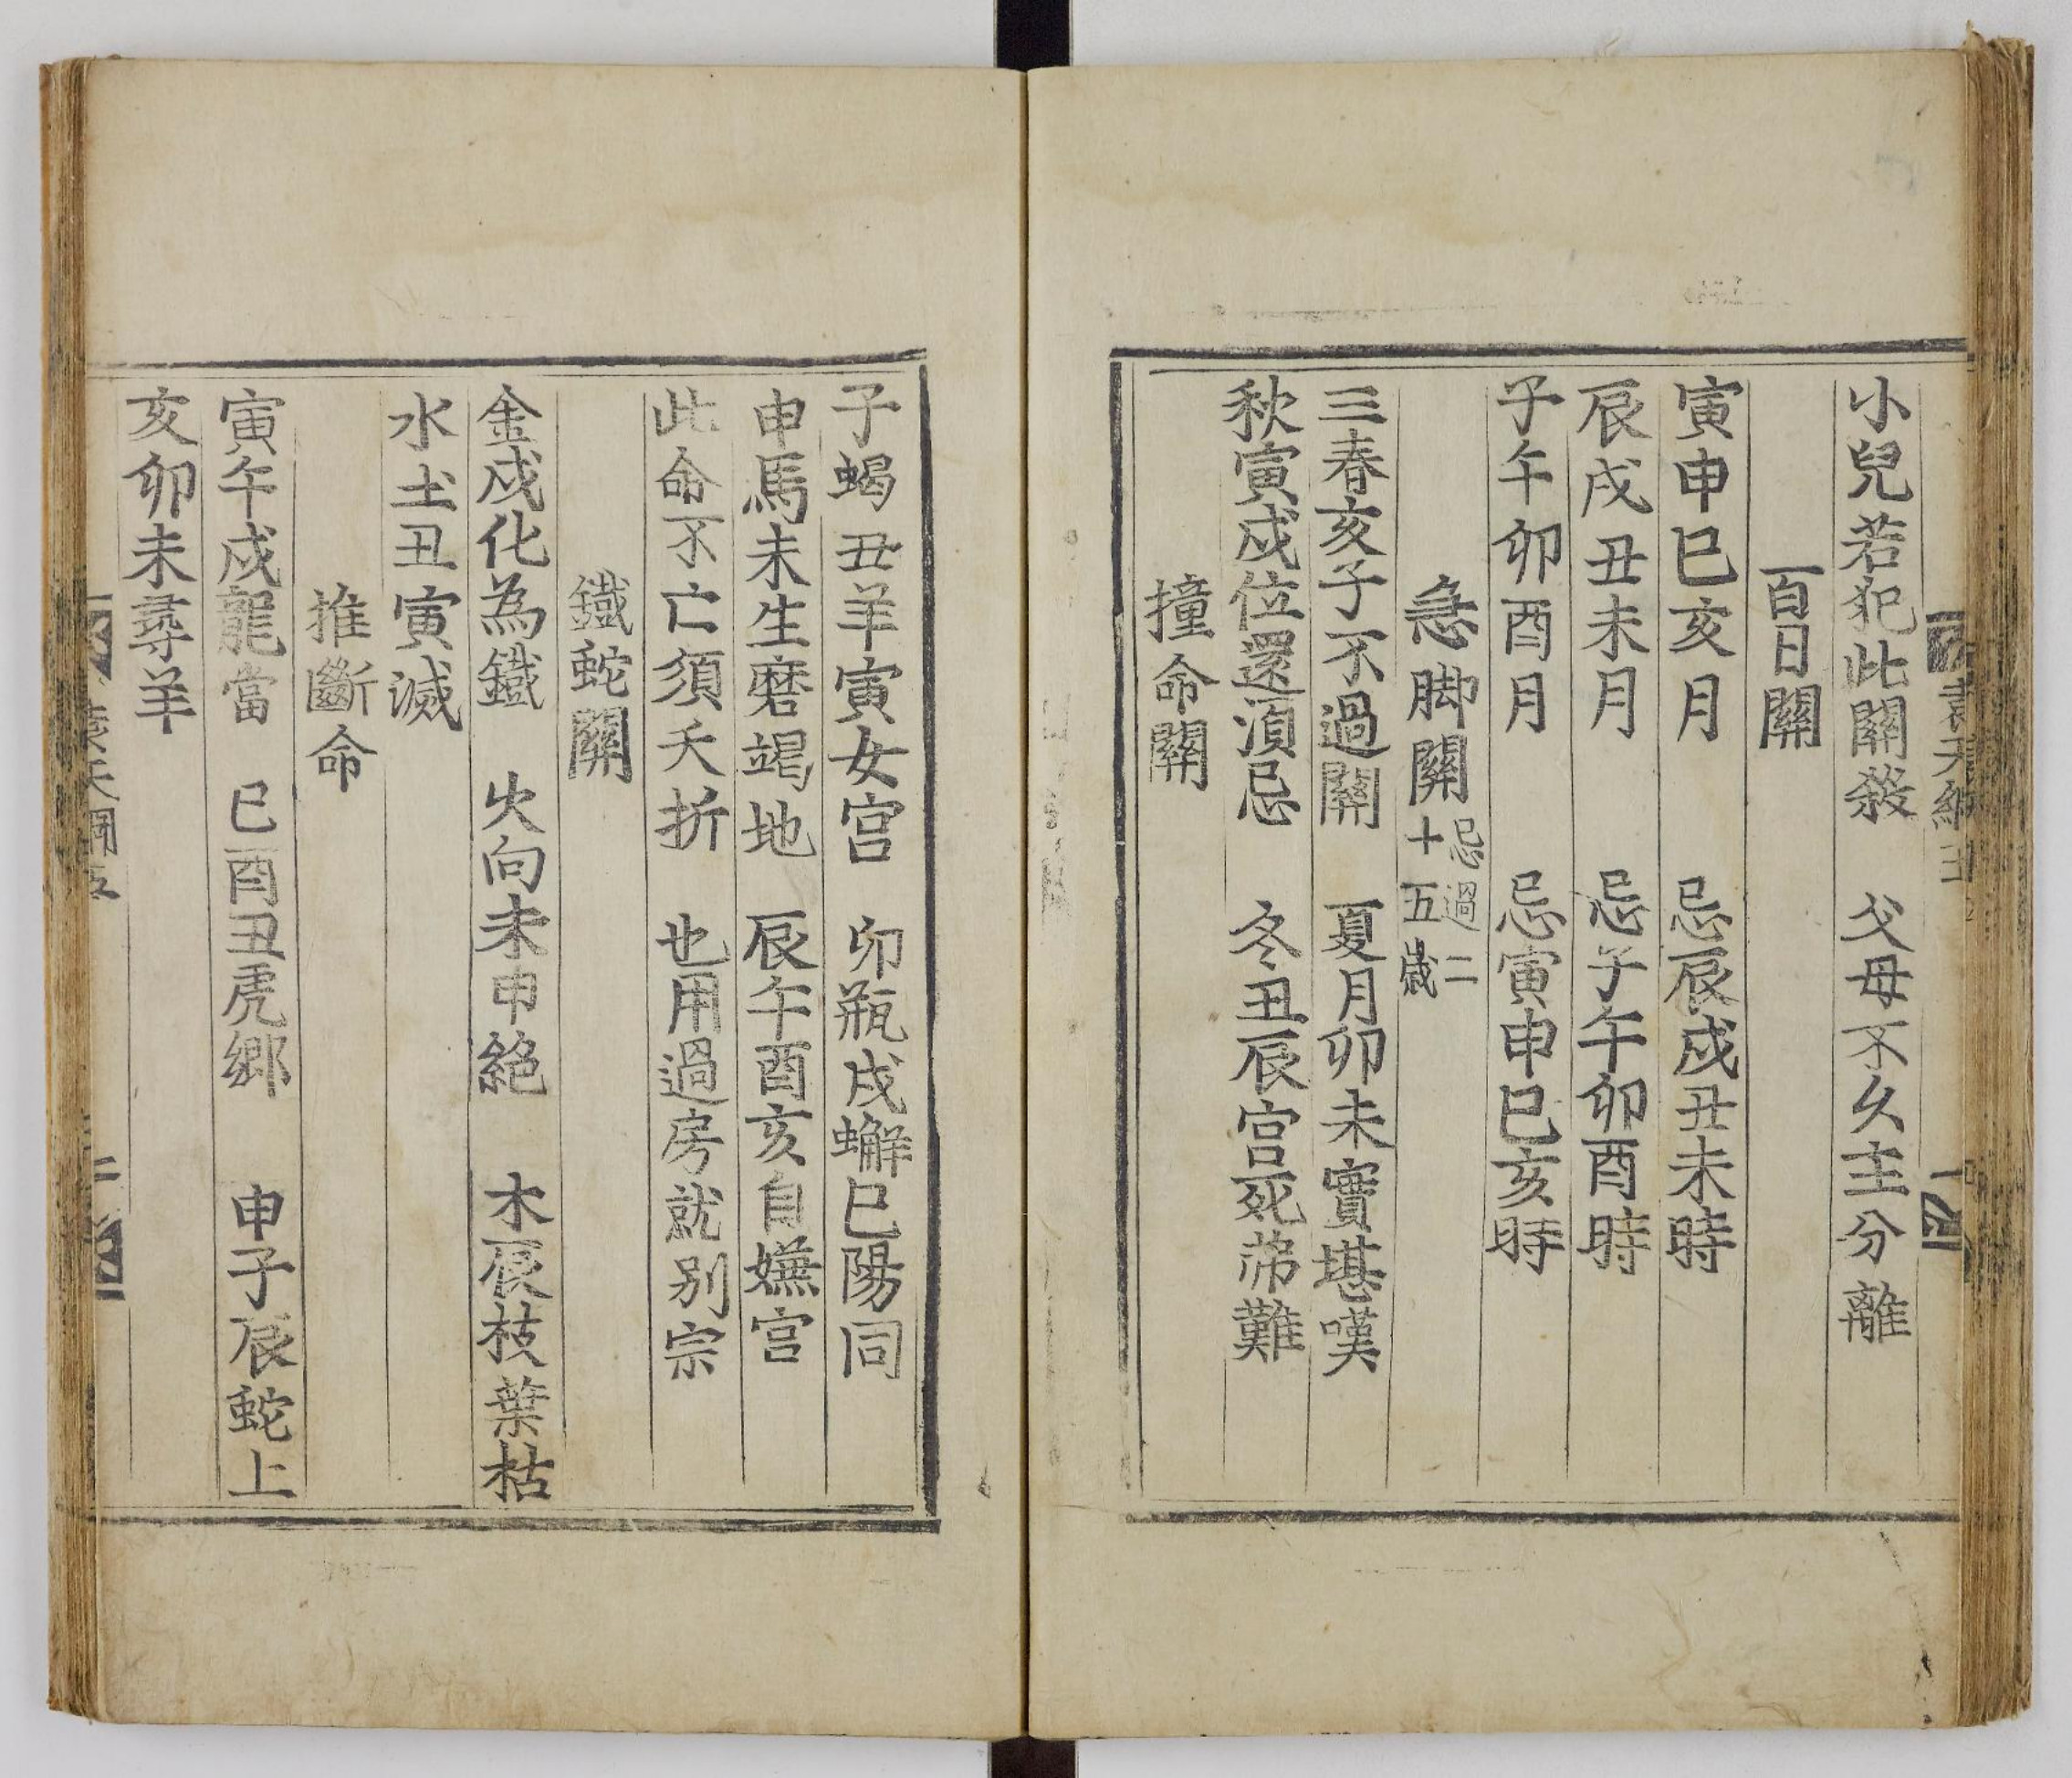 小兒若犯此關殺　父母不久主分離
百日關
寅申巳亥月　忌辰戌丑未時
辰戌丑未月　忌子午卯酉時
子午卯酉月　忌寅申巳亥時
急脚關忌過二十五歲
三春亥子不過關　夏月卯未實堪嘆
秋寅戌位還湏忌　冬丑辰宮死苐難
撞命關
子蝎丑羊寅女宮　卯瓶戌蠏巳陽同
申馬未生磨竭地　辰午酉亥自嫵宮
此命不亡須夭折　也用過房就别宗
鐵蛇關
金戌化為鐵　火向未申絕　木辰枝葉枯
水土丑寅滅
推斷命
寅午戌龍當　巳酉丑虎鄉　申子辰蛇上
亥卯未尋羊